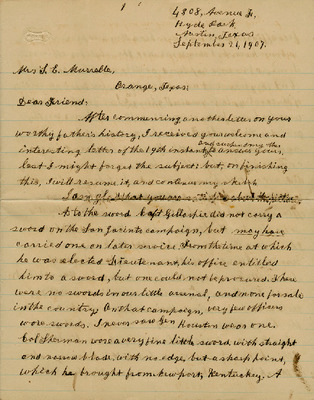 1
4808, Avenue F,
Hyde Park
Austin, Texas
September 21, 1907.
Mrs L. C. Murrell
Orange, Texas;
Dear Friend:
After commencing another letter on your
worthy father's history, I received your welcome and
interesting letter of the 19th instant, and answer
lest I might forget the subject; but, on finishing
this, I will resume it, and continue my sketch
I am glad that you are
As to the sword. Capt Gillaspie did not carry a
sword on the San Jacinto campaign, but may have
carried one on later service. From the time at which
he was elected Lieutenant, his office entitled
him to a sword, but one could not be procured. There
were no swords in our little arsenal, and none for sale
in the country. On that campaign, very few officers
wore swords. I never saw Gen Houston wear one.
Col Sherman wore a very fine little sword, with straight
and narrow blade, with no edge, but a sharp point,
which he brought from Newport, Kentucky. A